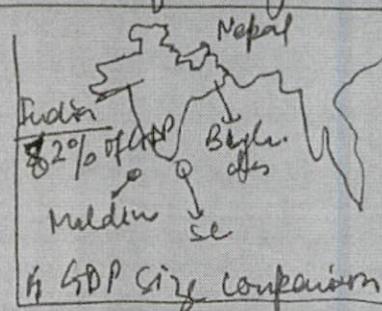 Nepal
India
82% of GDP
Maldiv
SL
GDP Size comparison